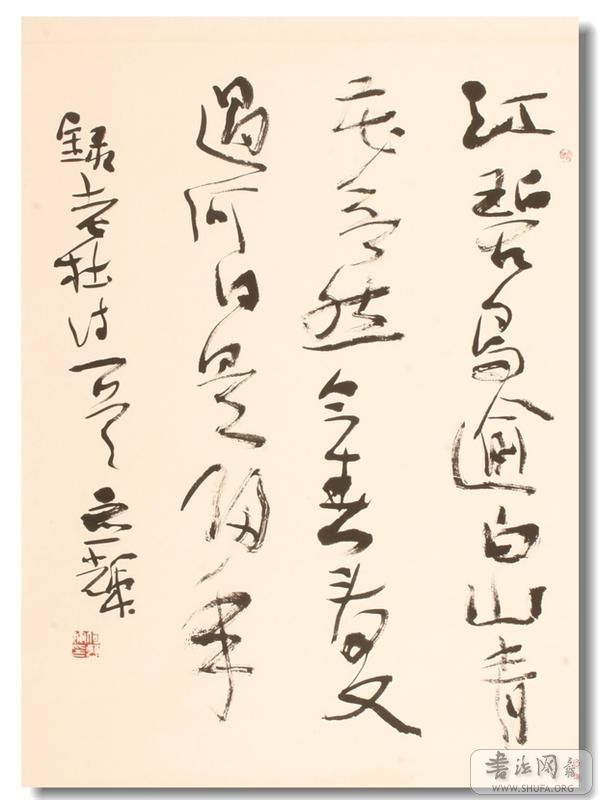 江碧鳥逾白山青
花欲然今春看又
過何日是歸年
録老杜诗一首
書法网
WWW.SHUFA.ORG